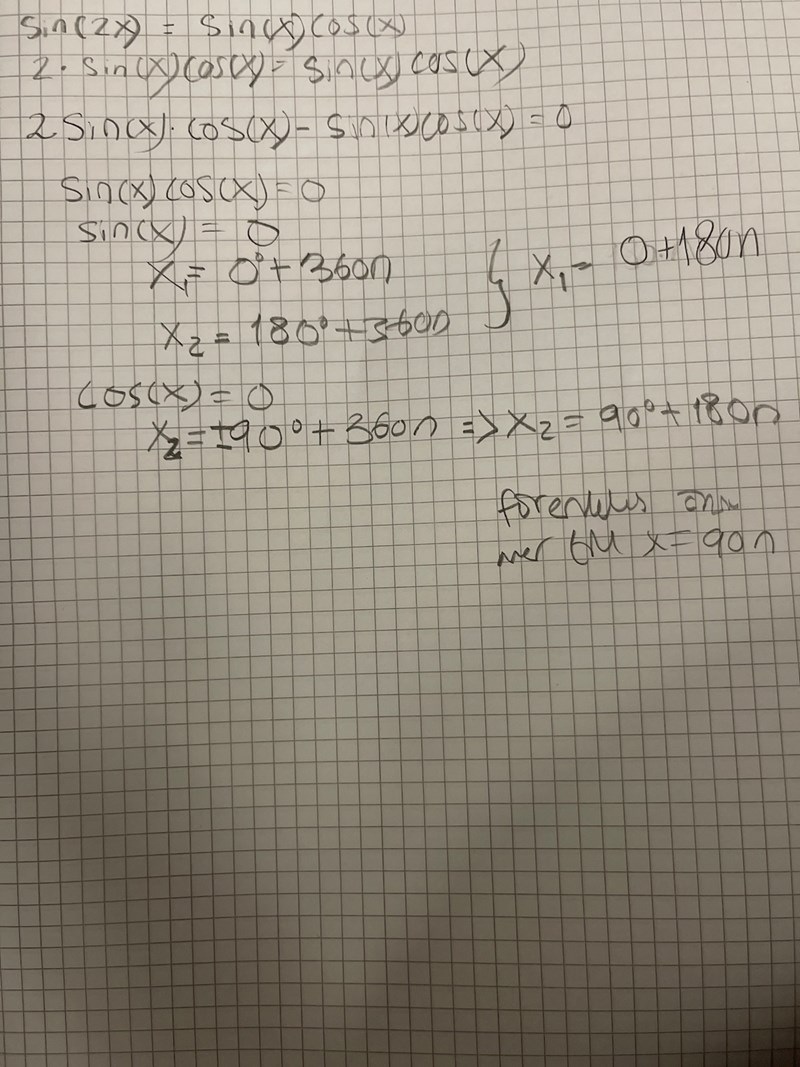 sin(2x) = sin(x)cos(x)
2 · sin(x)cos(x) = sin(x)cos(x)
2 sin(x) · cos(x) - sin(x)cos(x) = 0
sin(x)cos(x) = 0
sin(x) = 0
x₁ = 0° + 360n } x₁ = 0 + 180n
x₂ = 180° + 360n
cos(x) = 0
x₂ = ±90° + 360n => x₂ = 90° + 180n
förenklas
mer till x = 90n